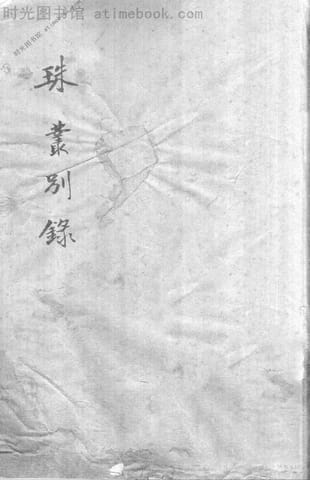 时光图书馆 atimebook.com
时光图书馆
珠叢別錄